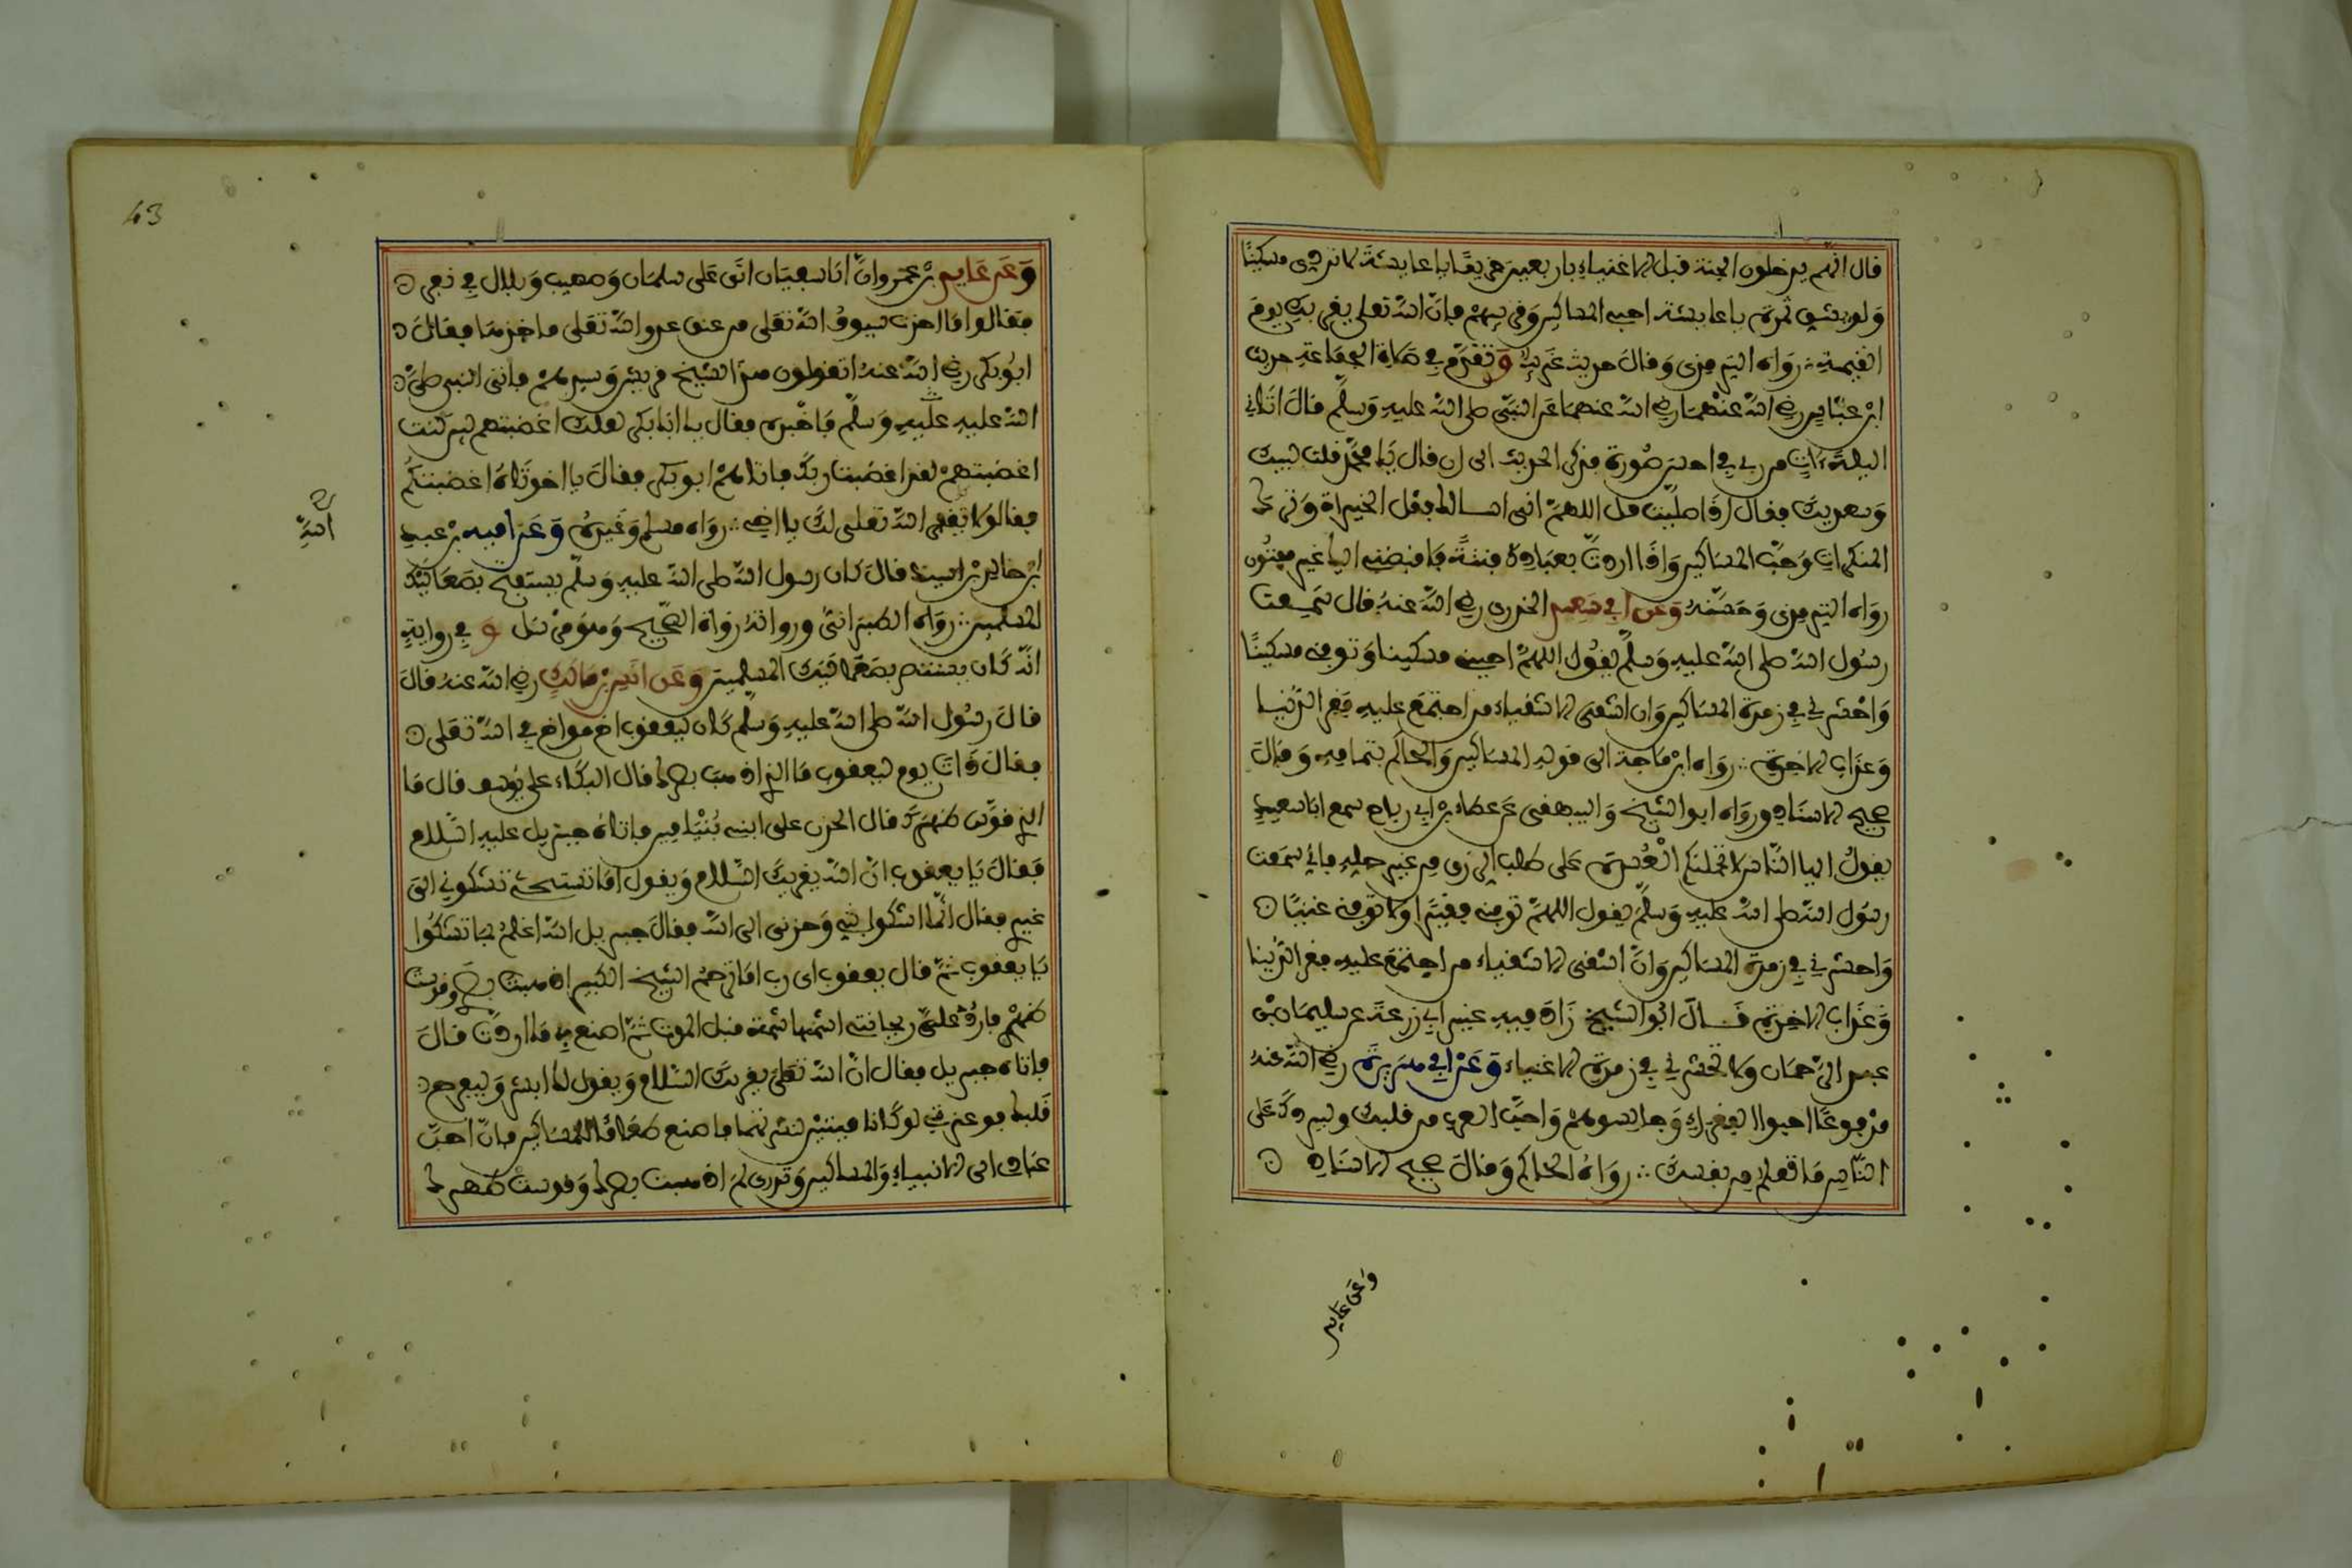 قال انهم يدخلون الجنة قبل الاغنياء باربعين خريفا يا عايشة لا تردى مسكينا
ولو بشق تمرة يا عايشة احبى المساكين وقربيهم فان الله تعلى يقربك يوم
القيمة رواه الترمذى وقال حديث غريب وتقدم فى صلاة الجماعة حديث
ابن عباس رضى الله عنهما رضى الله عنهما عن النبى صلى الله عليه وسلم قال اتانى
الليلة ءات من ربى فى احسن صورة فذكر الحديث الى ان قال يا محمد قلت لبيك
وسعديك فقال اذا صليت قل اللهم انى اسالك فعل الخيرات وترك
المنكرات وحب المساكين واذا اردت بعبادك فتنة فاقبضنى اليك غير مفتون
رواه الترمذى وحسنه وعن ابى سعيد الخدرى رضى الله عنه قال سمعت
رسول الله صلى الله عليه وسلم يقول اللهم احينى مسكينا وتوفنى مسكينا
واحشرنى فى زمرة المساكين وان اشقى الاشقياء من اجتمع عليه فقر الدنيا
وعذاب الاخرة رواه ابن ماجة الى قوله المساكين والحاكم بتمامه وقال
صحيح الاسناد ورواه ابو الشيخ والبيهقى عن عطاء بن ابى رباح سمع ابا سعيد
يقول ايها الناس لا تحملنكم العسرة على طلب الرزق من غير حله فانى سمعت
رسول الله صلى الله عليه وسلم يقول اللهم توفنى فقيرا ولا توفنى غنيا
واحشرنى فى زمرة المساكين وان اشقى الاشقياء من اجتمع عليه فقر الدنيا
وعذاب الاخرة قال ابو الشيخ زاد فيه غير ابى زرعة عن سليمان بن
عبد الرحمان ولا تحشرنى فى زمرة الاغنياء وعن ابى هريرة رضى الله عنه
مرفوعا احبوا الفقراء وجالسوهم واحب العرب من قلبك وليردك على
الناس ما تعلم من نفسك رواه الحاكم وقال صحيح الاسناد
وعن عايد
43
وعن عايد بن عمرو ان ابا سفيان اتى على سلمان وصهيب وبلال فى نفر
فقالوا ما اخذت سيوف الله تعلى من عنق عدو الله تعلى ماخذها فقال
ابو بكر رضى الله عنه اتقولون هذا لشيخ قريش وسيدهم فاتى النبى صلى
الله عليه عليه وسلم فاخبره فقال يا ابا بكر لعلك اغضبتهم لين كنت
اغضبتهم لقد اغضبت ربك فاتاهم ابو بكر فقال يا اخوتاه اغضبتكم
فقالوا لا يغفر الله تعلى لك يا اخى رواه مسلم وغيره وعن امية بن عبد
الله
ابن خالد بن اسيد قال كان رسول الله صلى الله عليه وسلم يستفتح بصعاليك
المسلمين رواه الطبرانى ورواته رواة الصحيح وهو مرسل وفى رواية
انه كان يستنصر بصعاليك المسلمين وعن انس بن مالك رضى الله عنه قال
قال رسول الله صلى الله عليه وسلم كان ليعقوب اخ مواخ فى الله تعلى
فقال ذات يوم ليعقوب ما الذى اذهب بصرك قال البكاء على يوسف قال ما
الذى قوس ظهرك قال الحزن على ابنى بنيامين فاتاه جبريل عليه السلام
فقال يا يعقوب ان الله يقريك السلام ويقول اما تستحى تشكونى الى
غيرى فقال انما اشكوا بثى وحزنى الى الله فقال جبريل الله اعلم بما تشكوا
يا يعقوب ثم قال يعقوب اى رب اما ترحم الشيخ الكبير اذهبت بصرى وقوست
ظهرى فاردد على ريحانتى اشمها شمة قبل الموت ثم اصنع بى ما اردت قال
فاتاه جبريل فقال ان الله تعلى يقريك السلام ويقول لك ابشر وليفرح
قلبك فوعزتى لو كانا ميتين لنشرتهما فاصنع طعاما للمساكين فان احب
عبادى الى الانبياء والمساكين وتدرى لم اذهبت بصرك وقوست ظهرك